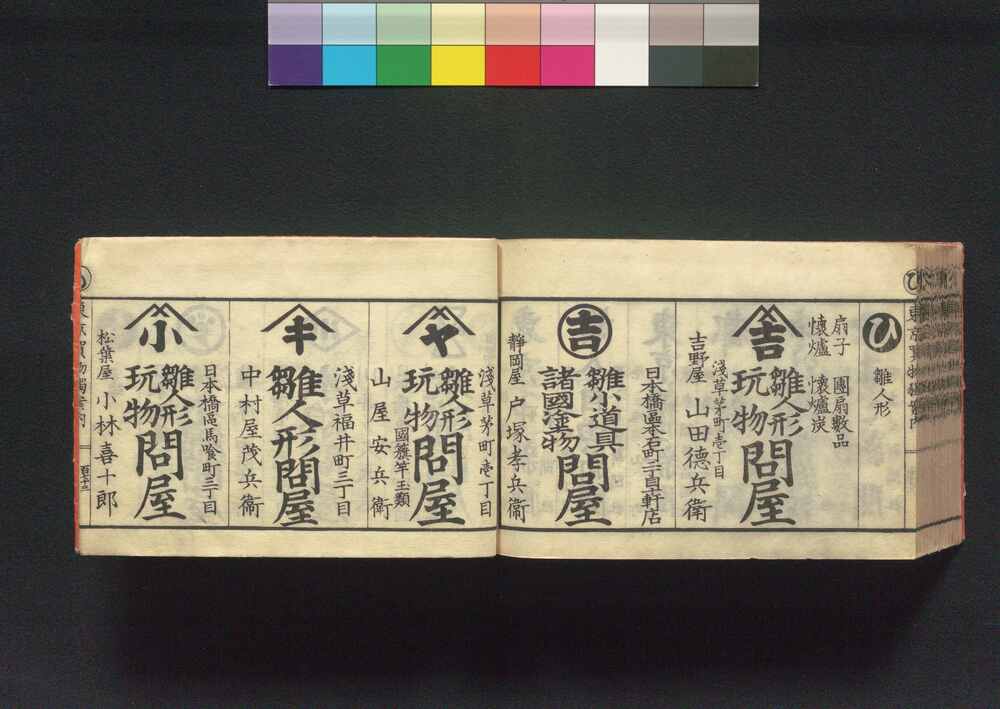 ひ
雛人形
扇子 團扇數品
懷爐 懷爐炭
吉
雛人形
玩物
問屋
淺草茅町壱丁目
吉野屋 山田德兵衛
吉
雛小道具
諸國塗物
問屋
日本橋區本石町二丁目軒店
靜岡屋 戸塚孝兵衛
ヤ
雛人形
玩物
問屋
淺草茅町壱丁目
國籏竿玉類
山屋安兵衛
キ
雛人形問屋
淺草福井町三丁目
中村屋茂兵衛
小
雛人形
玩物
問屋
日本橋區馬喰町三丁目
松葉屋 小林喜十郎